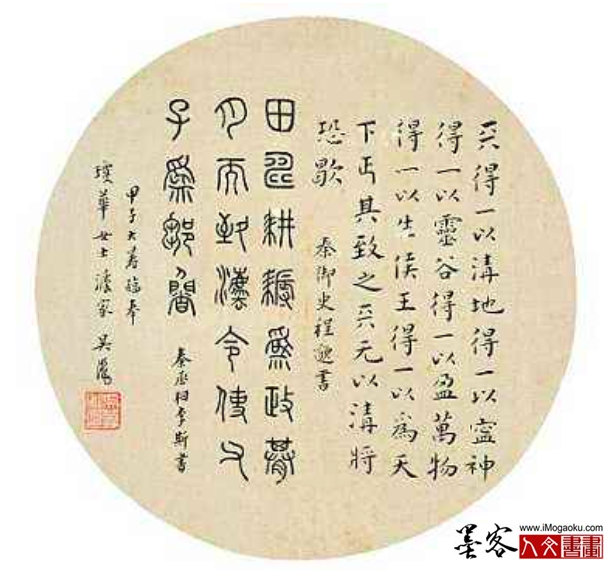 天得一以清地得一以寍神
得一以靈谷得一以盈萬物
得一以生侯王得一以為天
下正其致之天无以清將
恐歇 秦御史程邈書
田疇耕耨為政朞
月而致灋令使父
子為鄰閭 秦丞相李斯書
甲子大暑臨奉
瓊華女士法家 吳
墨客 www.iMogaoku.com
人文書畫